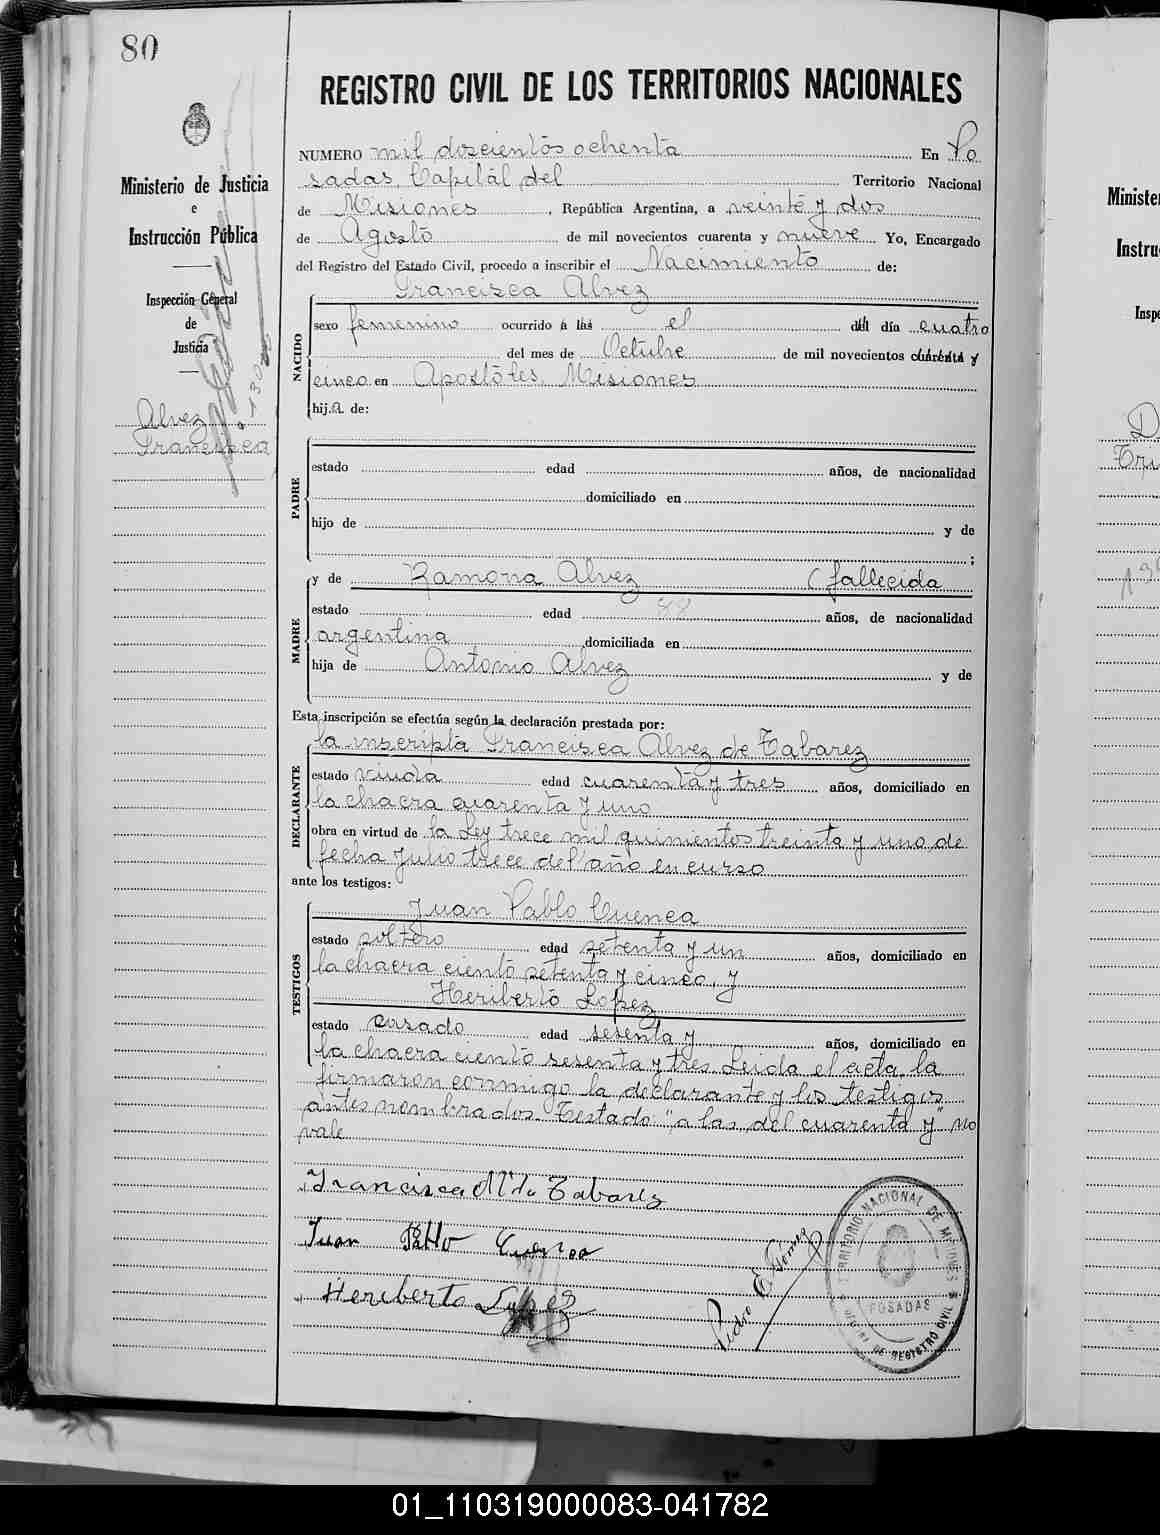 80
REGISTRO CIVIL DE LOS TERRITORIOS NACIONALES
Ministerio de Justicia
e
Instrucción Pública
Inspección General
de
Justicia
Alvez
Francisca
NUMERO mil doscientos ochenta En Po
sadas, Capital del Territorio Nacional
de Misiones, República Argentina, a veinte y dos
de Agosto de mil novecientos cuarenta y nueve Yo, Encargado
del Registro del Estado Civil, procedo a inscribir el Nacimiento de:
Francisca Alvez
NACIDO
sexo femenino ocurrido a las el del día cuatro
del mes de Octubre de mil novecientos cuarenta y
cinco en Apostoles, Misiones
hij.a de:
PADRE
estado edad años, de nacionalidad
domiciliado en
hijo de y de
;
MADRE
y de Ramona Alvez (fallecida
estado edad años, de nacionalidad
argentina domiciliada en
hija de Antonio Alvez y de
Esta inscripción se efectúa según la declaración prestada por:
DECLARANTE
la inscripta Francisca Alvez de Tabarez
estado viuda edad cuarenta y tres años, domiciliado en
la chacra cuarenta y uno
obra en virtud de la Ley trece mil quinientos treinta y uno de
fecha Julio trece del año en curso
ante los testigos:
TESTIGOS
Juan Pablo Cuenca
estado soltero edad setenta y un años, domiciliado en
la chacra ciento setenta y cinco, y
Heriberto Lopez
estado casado edad sesenta y años, domiciliado en
la chacra ciento sesenta y tres. Leida el acta, la
firmaron conmigo la declarante y los testigos
antes nombrados. Testado: "a las del cuarenta y" no
vale
Francisca A de Tabarez
Juan Pablo Cuenca
Heriberto Lopez
Pedro E. Gómez
TERRITORIO NACIONAL DE MISIONES
POSADAS
DE REGISTRO CIVIL
Ministe
Instru
Inspe
01_110319000083-041782